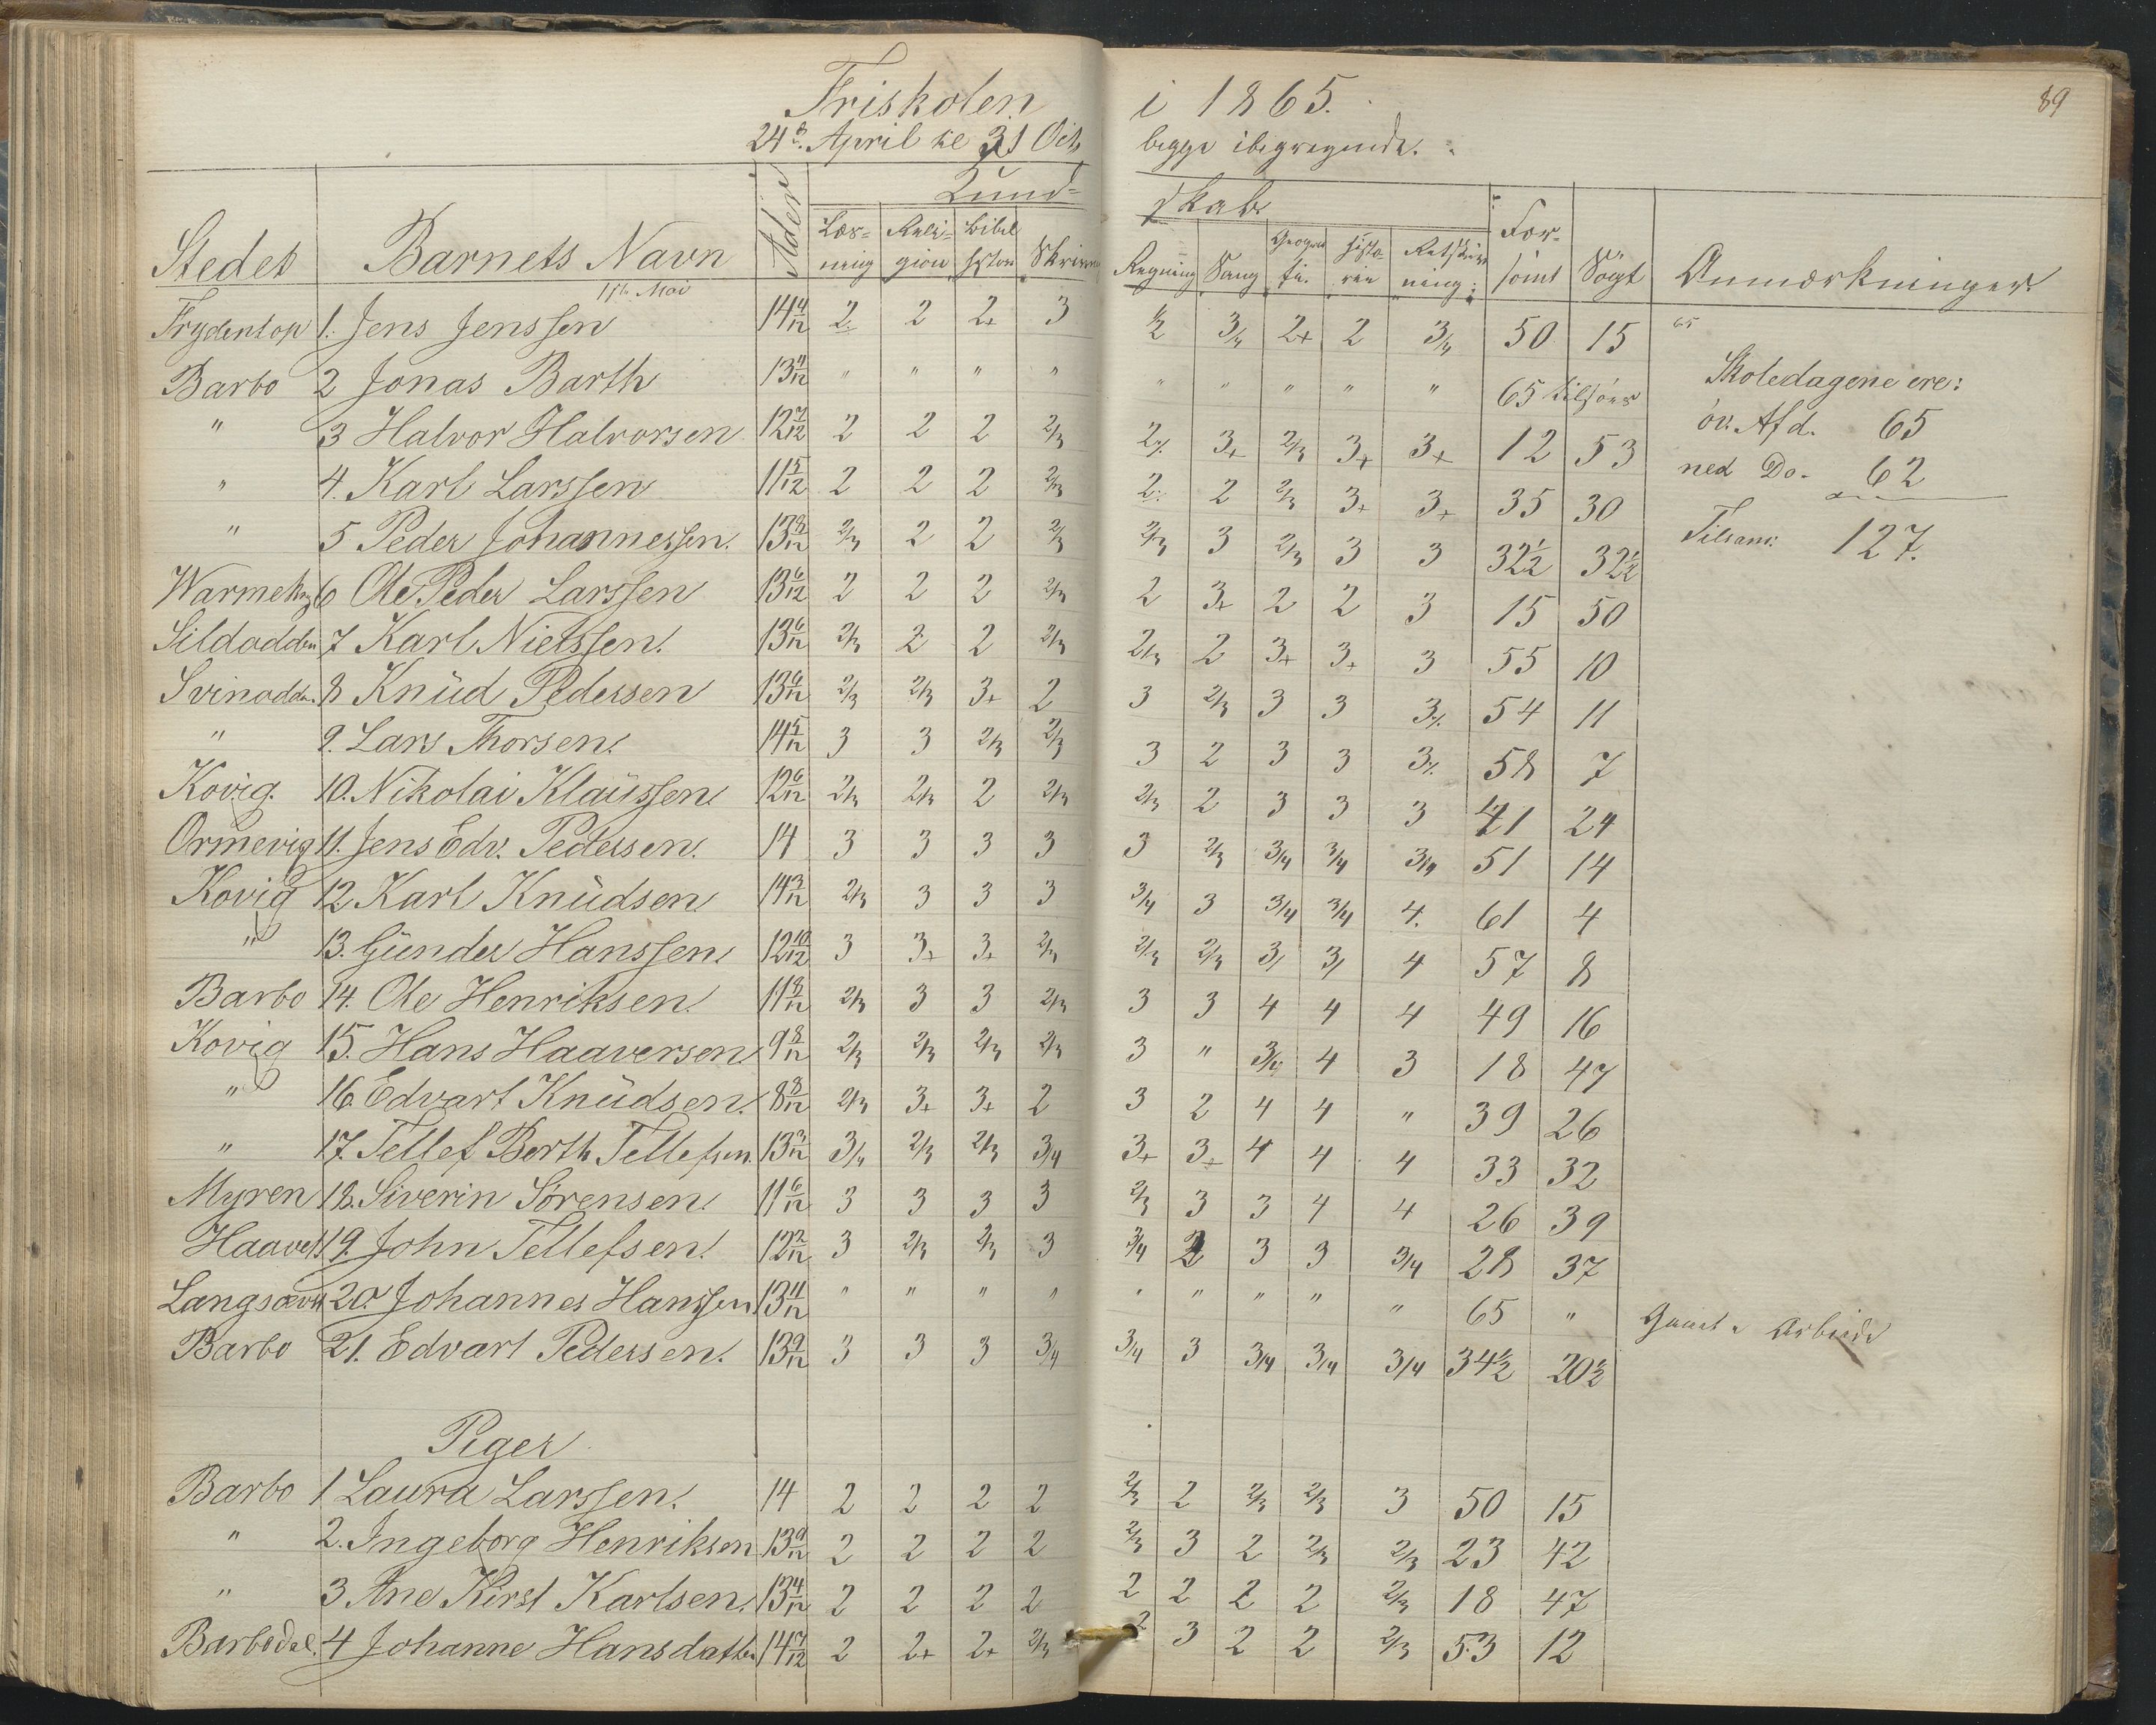 Friskolen i 1865. 89
24de April til 31 Octb begge iberegnede.
Kund- skab.
Stedet Barnets Navn Alder Læs- ning Reli- gion Bibel hston Skrivn Regning Sang Geogra fie. histo rien Retskriv ning. For- sömt Sögt Anmærkninger
11te Mai
Frydentop 1. Jens Jenssen 14 4/12 2. 2 2+ 3 1/2 3/4 2+ 2 3/4 50 15 65
Barbo 2 Jonas Barth 13 4/12 " " " " " " " " " 65 tilsöes Skoledagene ere:
" 3 Halvor Halvorsen 12 7/12 2 2 2 2/3 2% 3+ 2/3 3+ 3+ 12 53 öv. Afd. 65
" 4. Karl Larssen 11 5/12 2 2 2 2/3 2. 2 2/3 3+ 3+ 35 30 ned Do. 62
" 5 Peder Johannessen. 13 8/12 2/3 2 2 2/3 2/3 3 2/3 3 3 32 1/2 32 1/2 Tilsam: 127.
6 Ole Peder Larssen 13 6/12 2 2 2 2/3 2 3+ 2 2 3 15 50
Sildodden 7 Karl Nielssen. 13 6/12 2/3 2 2 2/3 2/3 2 3+ 3+ 3 55 10
Svinodden. 8 Knüd Pedersen 13 6/12 2/3 2/3 3+ 2 3 2/3 3 3 3% 54 11
" 9. Lars Thorsen. 14 5/12 3 3 2/3 2/3 3 2 3 3 3% 58 7
Kovig. 10. Nikolai Klaüssen. 12 6/12 2/3 2/3 2 2/3 2/3 2 3 3 3 41 24
Ormevig 11. Jens Edv. Pedersen. 14 3 3 3 3 3 2/3 3/4 3/4 3/4 51 14
Kovig 12 Karl Knüdsen 14 3/12 2/3 3 3 3 3/4 3 3/4 3/4 4. 61 4
" 13. Günder Hanssen. 12 10/12 3 3+ 3+ 2/3 2/3 2/3 3/ 3/ 4 57 8
Barbo 14. Ole Henriksen. 11 8/12 2/3 3 3 2/3 3 3 4 4 4 49 16
Kovig 15. Hans Haaversen 9 8/12 2/3 2/3 2/3 2/3 3 " 3/4 4 3 18 47
" 16. Edvart Knüdsen. 8 8/12 2/3 3+ 3+ 2 3 2 4 4 " 39 26
" 17. Tellef Berth Tellefsen. 13 3/12 3/4 2/3 2/3 3/4 3+ 3+ 4 4 4 33 32
Myren 18. Siverin Sörensen. 11 6/12 3 3 3 3 2/3 3 3 4 4 26 39
19. John Tellefsen. 12 2/12 3 2/3 2/3 3 3/4 2 3 3 3/4 28 37
20. Johannes Hanssen 13 11/12 " " " " " " " " " 65 "
Barbo 21. Edvart Pedersen. 13 9/12 3 3 3 3/4 3/4 3 3/4 3/4 3/4 34 1/2 20 1/2
Piger
Barbo 1 Laura Larssen. 14 2 2 2 2 2/3 2 2/3 2/3 3 50 15
" 2. Ingeborg Henriksen 13 9/12 2 2 2 2 2/3 3 2 2/3 2/3 23 42
" 3 Ane Kirst Karlsen. 13 4/12 2 2 2 2 2 2 2 2 2/3 18 47
Barbodal. 4 Johanne Hansdatter 14 7/12 2 2+ 2+ 2/3 2 3 2 2 2/3 53 12